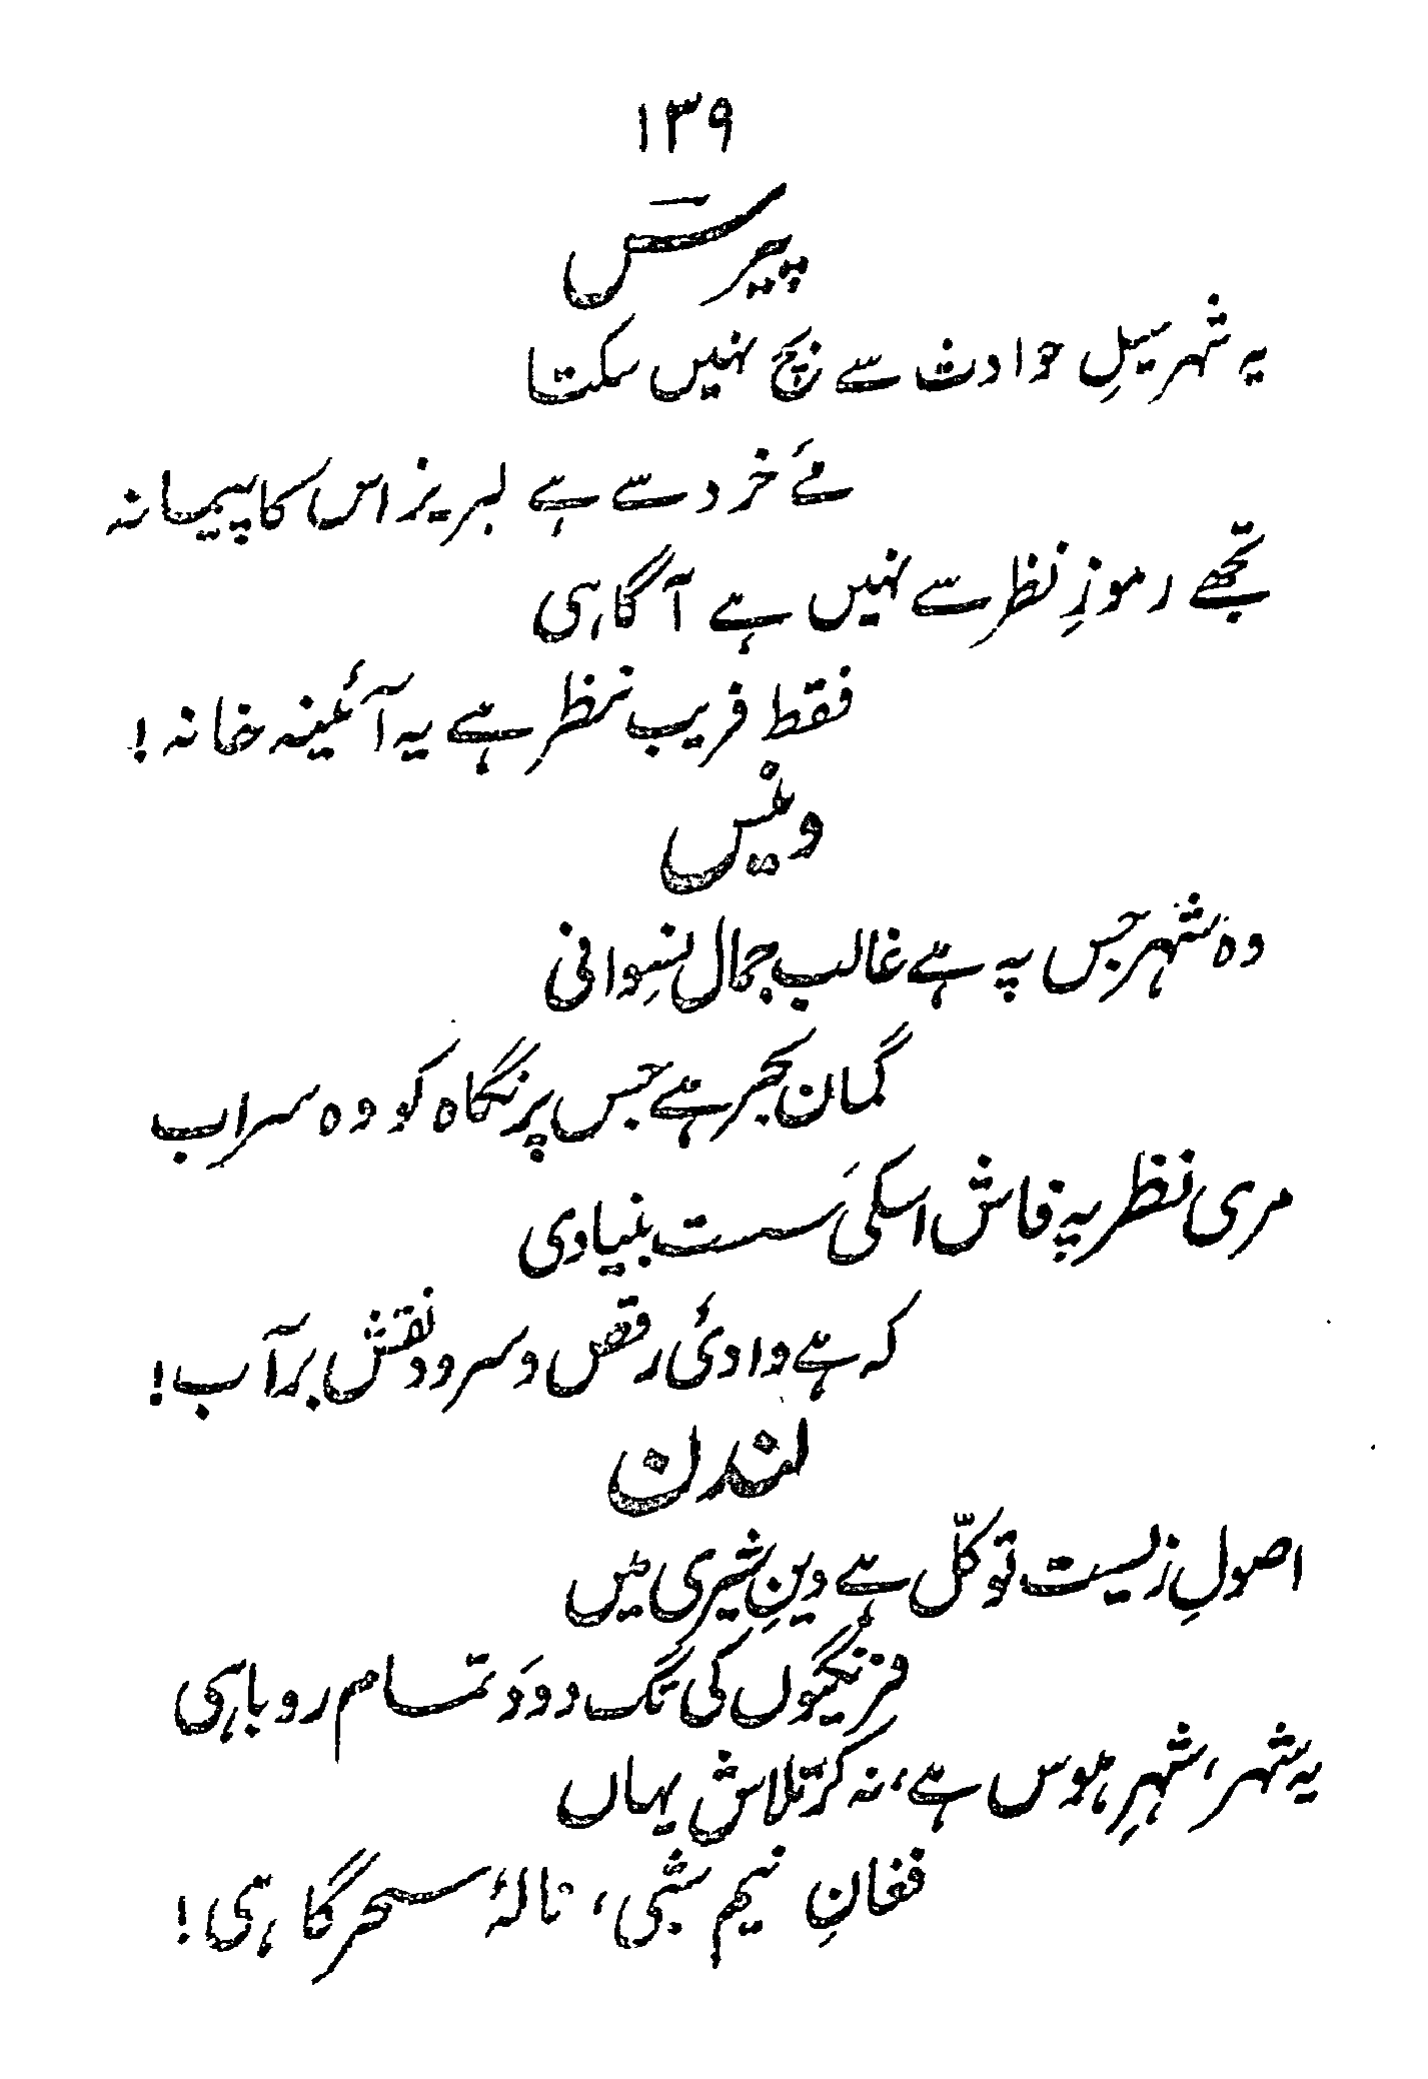 ۱۳۹
پیرس
یہ شہر سیلِ حوادث سے بچ نہیں سکتا
مئے خرد سے ہے لبریز اس کا پیمانہ
تجھے رموزِ نظر سے نہیں ہے آگاہی
فقط فریب نظر ہے یہ آئینہ خانہ !
وینس
وہ شہر جس پہ ہے غالب جمال نسِوانی
گمان بحر ہے جس پر نگاہ کو وہ سراب
مری نظر پہ فاش اسکی سست بنیادی
کہ ہے وادئ رقص و سرود نقش بر آب !
لندن
اصولِ زیست توکّل ہے دینِ شیری میں
فرنگیوں کی تگ و دَو تمام روباہی
یہ شہر، شہرِ ہوس ہے، نہ کر تلاش یہاں
فغانِ نیم شبی، نالۂ سحر گاہی !